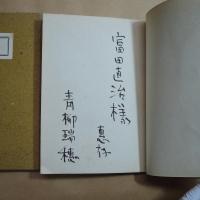 富田直治様
恵存
青柳瑞穂